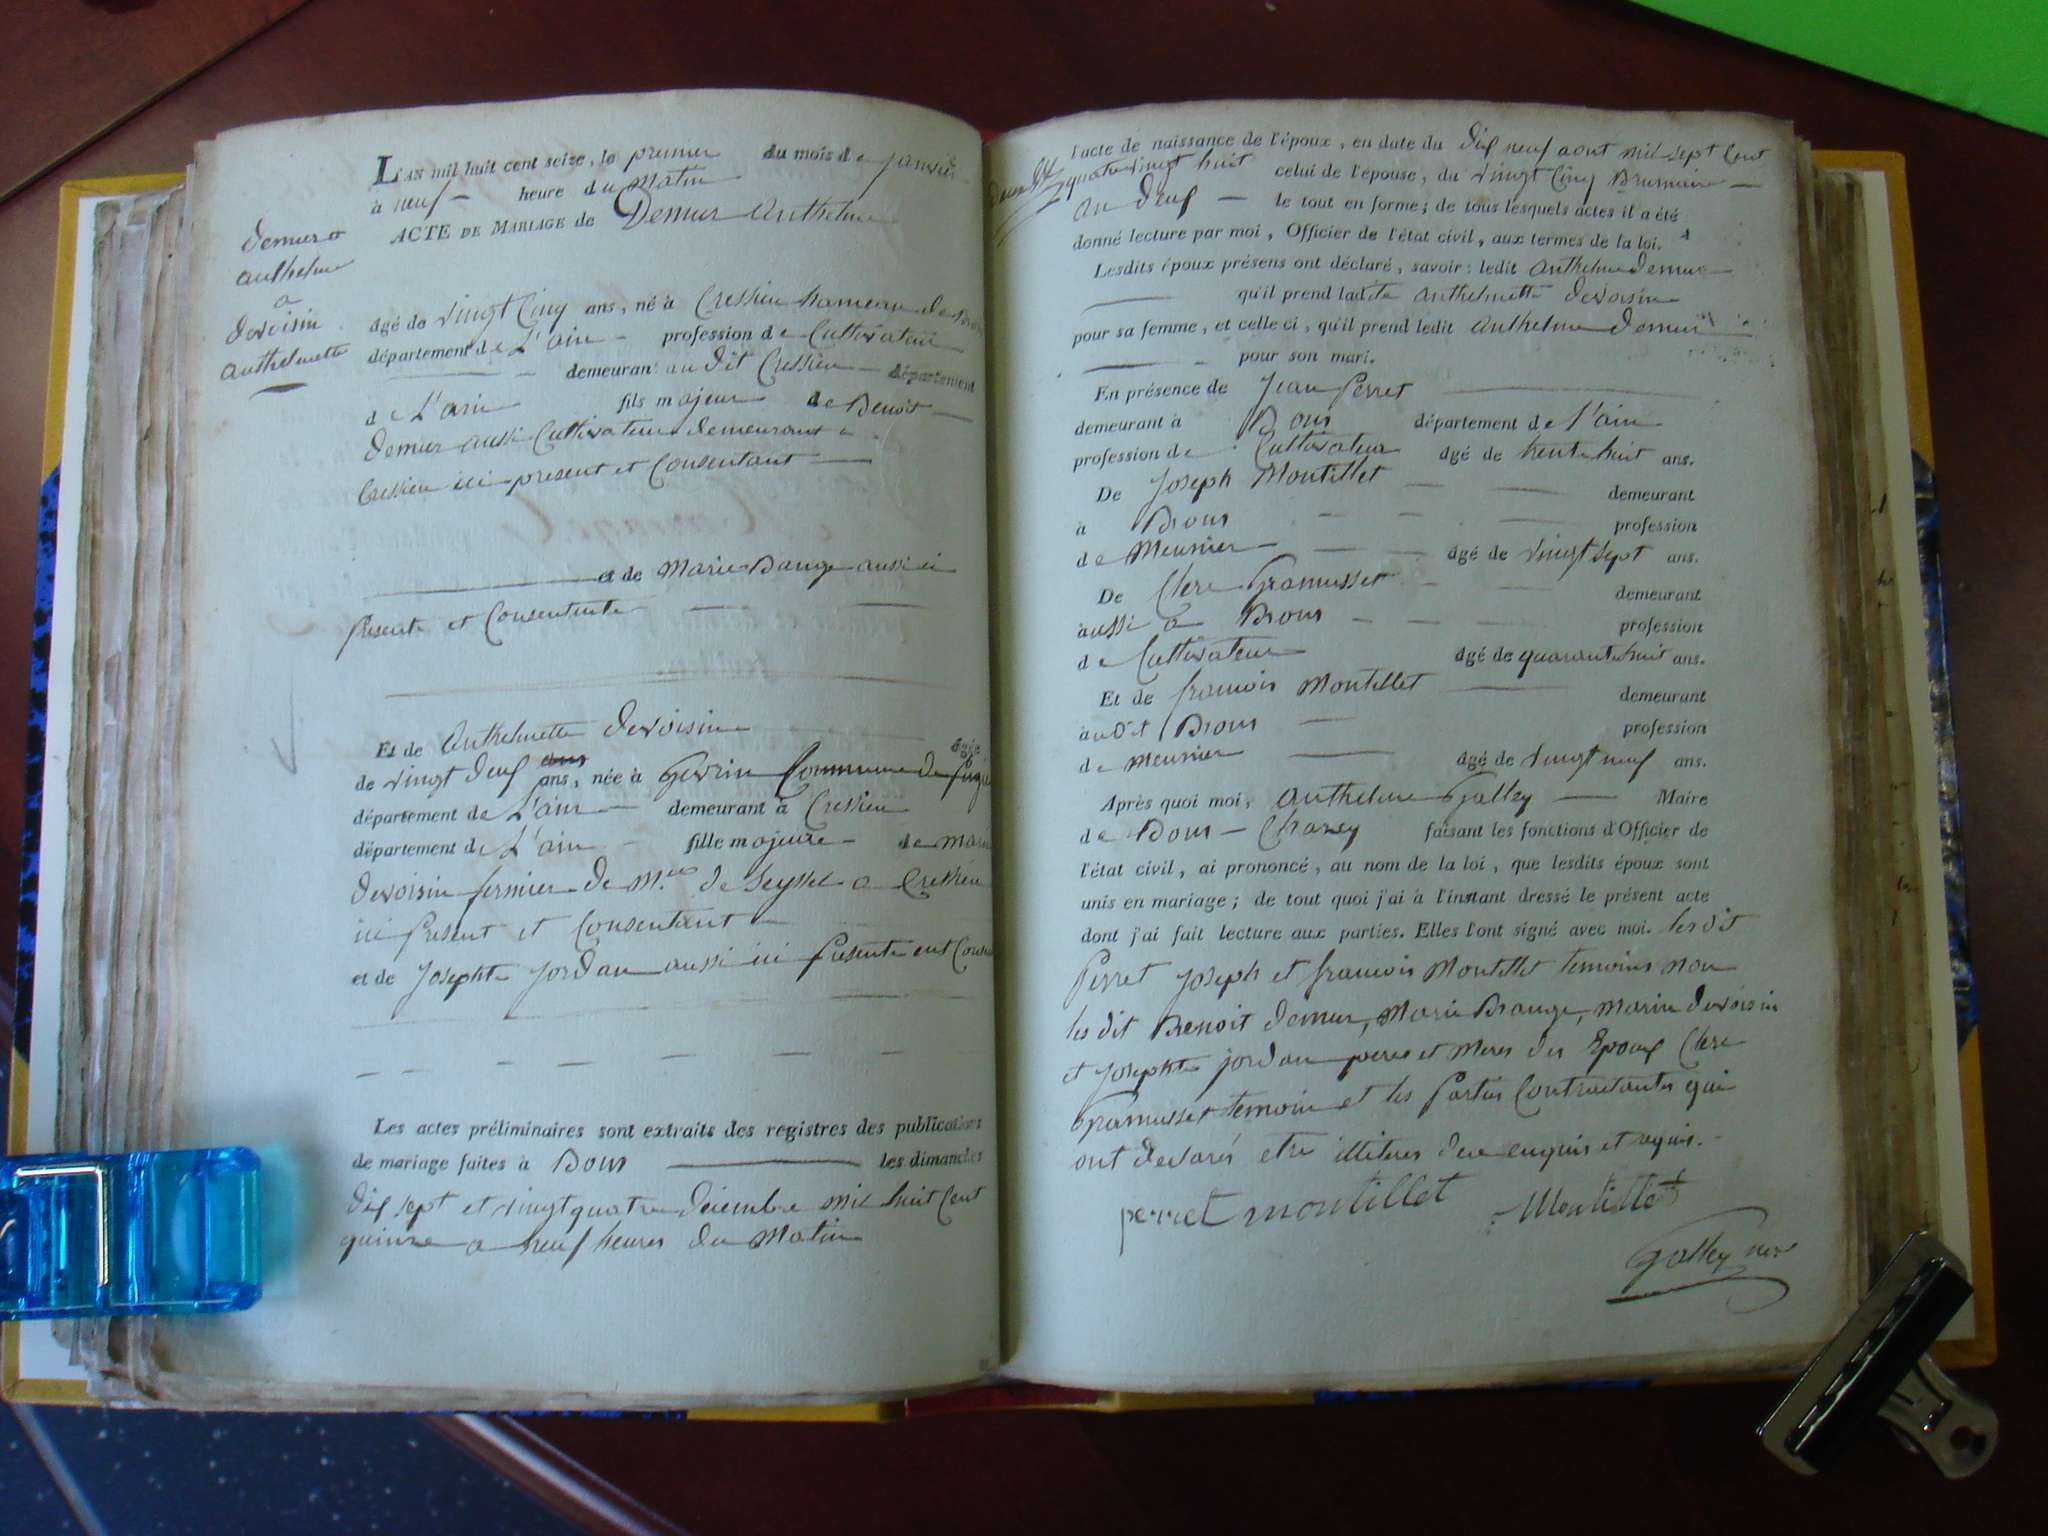 L'AN mil huit cent seize, le premier du mois de janvier
à neuf heure du matin
ACTE DE MARIAGE de Demur Anthelme
demur
anthelme
a
devoisin
anthelmette
âgé de vingt cinq ans, né à Cressieu hameau de
département de L'ain profession de Cultivateur
demeurant au dit Cressieu département
de L'ain fils majeur de Benoit
demur aussi Cultivateur demeurant a
Cressieu ici present et Consentant
et de Marie Bauge aussi ici
Presente et Consentente
Et de Anthelmette devoisin âgée
de vingt deuf ans, née à Gevrin Commune de
département de L'ain demeurant à Cressieu
département de L'ain fille majeure de marin
devoisin fermier de Mr. de Seyssel a Cressieu
ici Present et Consentant
et de Josephte Jordan aussi ici Presente
Les actes préliminaires sont extraits des registres des publications
de mariage faites à Bons les dimanches
dix sept et vingt quatre décembre mil huit Cent
quinze a neuf heures du Matin
l'acte de naissance de l'époux, en date du dix neuf aout mil sept Cent
quatre vingt huit celui de l'épouse, du vingt Cinq Brumaire
an deuf le tout en forme; de tous lesquels actes il a été
donné lecture par moi, Officier de l'état civil, aux termes de la loi.
Lesdits époux présens ont déclaré, savoir: ledit anthelme demur
qu'il prend ladite anthelmette devoisin
pour sa femme, et celle ci, qu'il prend ledit anthelme demur
pour son mari.
En présence de Jean Perret
demeurant à Bons département de l'ain
profession de Cultivateur âgé de trente huit ans.
De Joseph Montillet demeurant
à Brous profession
de Meunier âgé de vingt sept ans.
De Clere Gramusset demeurant
aussi a Brous profession
de Cultivateur âgé de quarante huit ans.
Et de francois Montillet demeurant
au dit Brous profession
de meunier âgé de vingt neuf ans.
Après quoi moi, anthelme Galley Maire
de Bons Chazey faisant les fonctions d'Officier de
l'état civil, ai prononcé, au nom de la loi, que lesdits époux sont
unis en mariage; de tout quoi j'ai à l'instant dressé le présent acte
dont j'ai fait lecture aux parties. Elles l'ont signé avec moi. les dit
Perret Joseph et francois Montillet temoins non
les dit Benoit demur, Marie Bauge, Marin devoisin
et Josephte jordan peres et Meres des Epoux Clere
Gramusset temoin et les Parties Contractantes qui
ont declarés etre illiteres de ce enquis et requis.
perret montillet Montillet
Galley